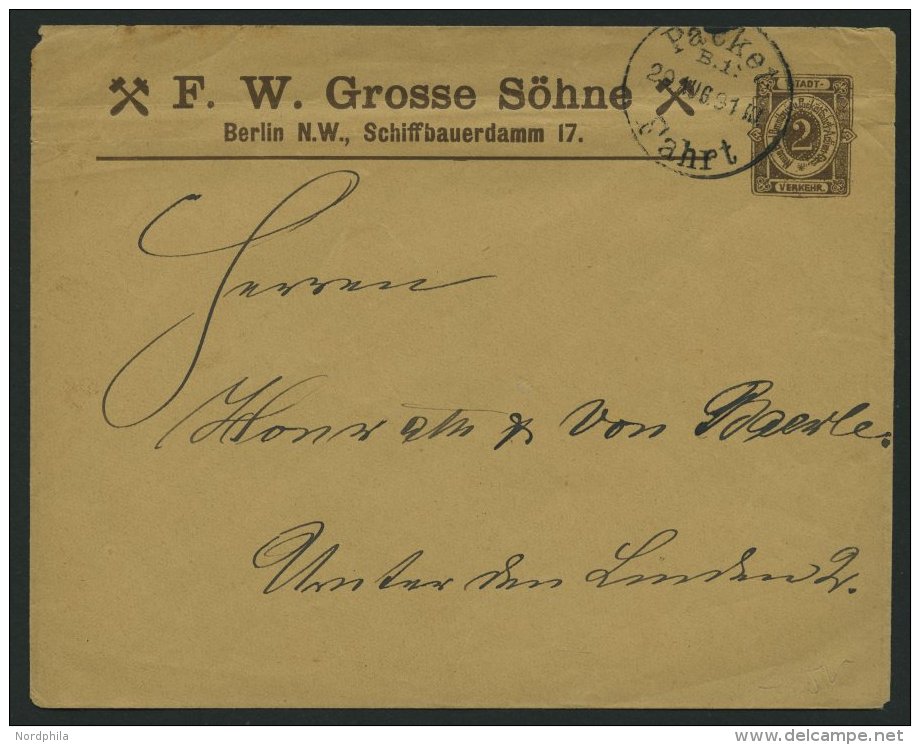 F. W. Grosse Söhne
Berlin N.W., Schiffbauerdamm 17.
Packet
B.1.
29 AUG. 91
Fahrt
STADT-
2
VERKEHR.
Herren
& von Baerle.
Unter den Linden 2.
Nordphila
delcampe.net